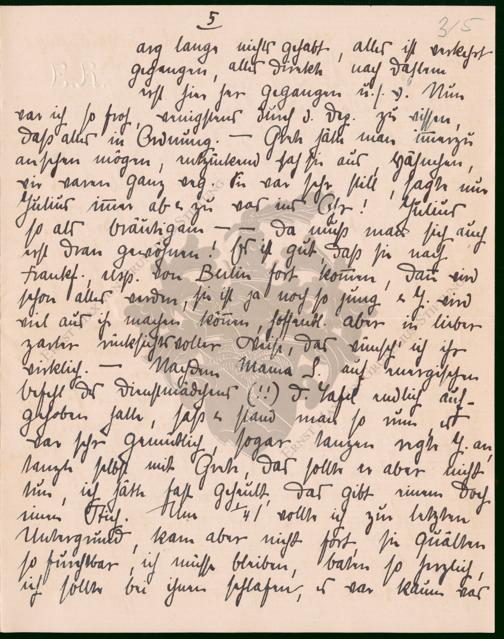 5
3/5
E.K.
arg lange nichts gehabt, alles ist verkehrt
gegangen, alles direkt nach Dahlem
erst hier her gegangen u.s.w. Nun
war ich so froh, wenigstens durch d. Dep. zu wissen,
daß alles in Ordnung. — Grete hätte man immerzu
ansehen mögen, entzückend sah sie aus Häschen,
wir waren ganz weg. Sie war sehr still, sagte nur
Julius immer ab & zu was ins Ohr! Julius
so als Bräutigam — — da muß man sich auch
erst dran gewöhnen! Es ist gut, daß sie nach
Frankf., resp. von Berlin fort kommen, dann wird
schon alles werden, sie ist ja noch so jung & J. wird
viel aus ihr machen können, hoffentl. aber in lieber
zarter rücksichtsvoller Weise, das wünsch' ich ihr
wirklich. — Nachdem Mama S. auf energischen
Befehl des Dienstmädchens (!!) d. Tafel endlich auf-
gehoben hatte, saß & stand man so rum, es
war sehr gemütlich, sogar tanzen regte J. an,
tanzte selbst mit Grete, das sollte er aber nicht
tun, ich hätte fast geheult, das gibt einem doch
einen Stich. Um ¼1 wollte ich zur letzten
Untergrund, kam aber nicht fort sie quälten
so furchtbar, ich müsse bleiben, baten so herzlich,
ich sollte bei ihnen schlafen, es war kaum was